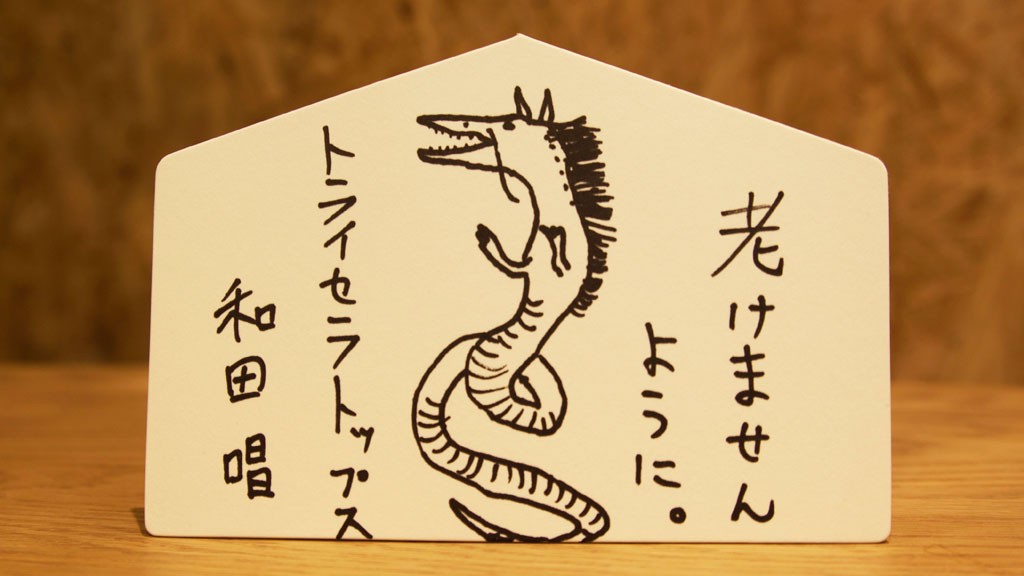 老けません
ように。
トライセラトップス
和田 唱